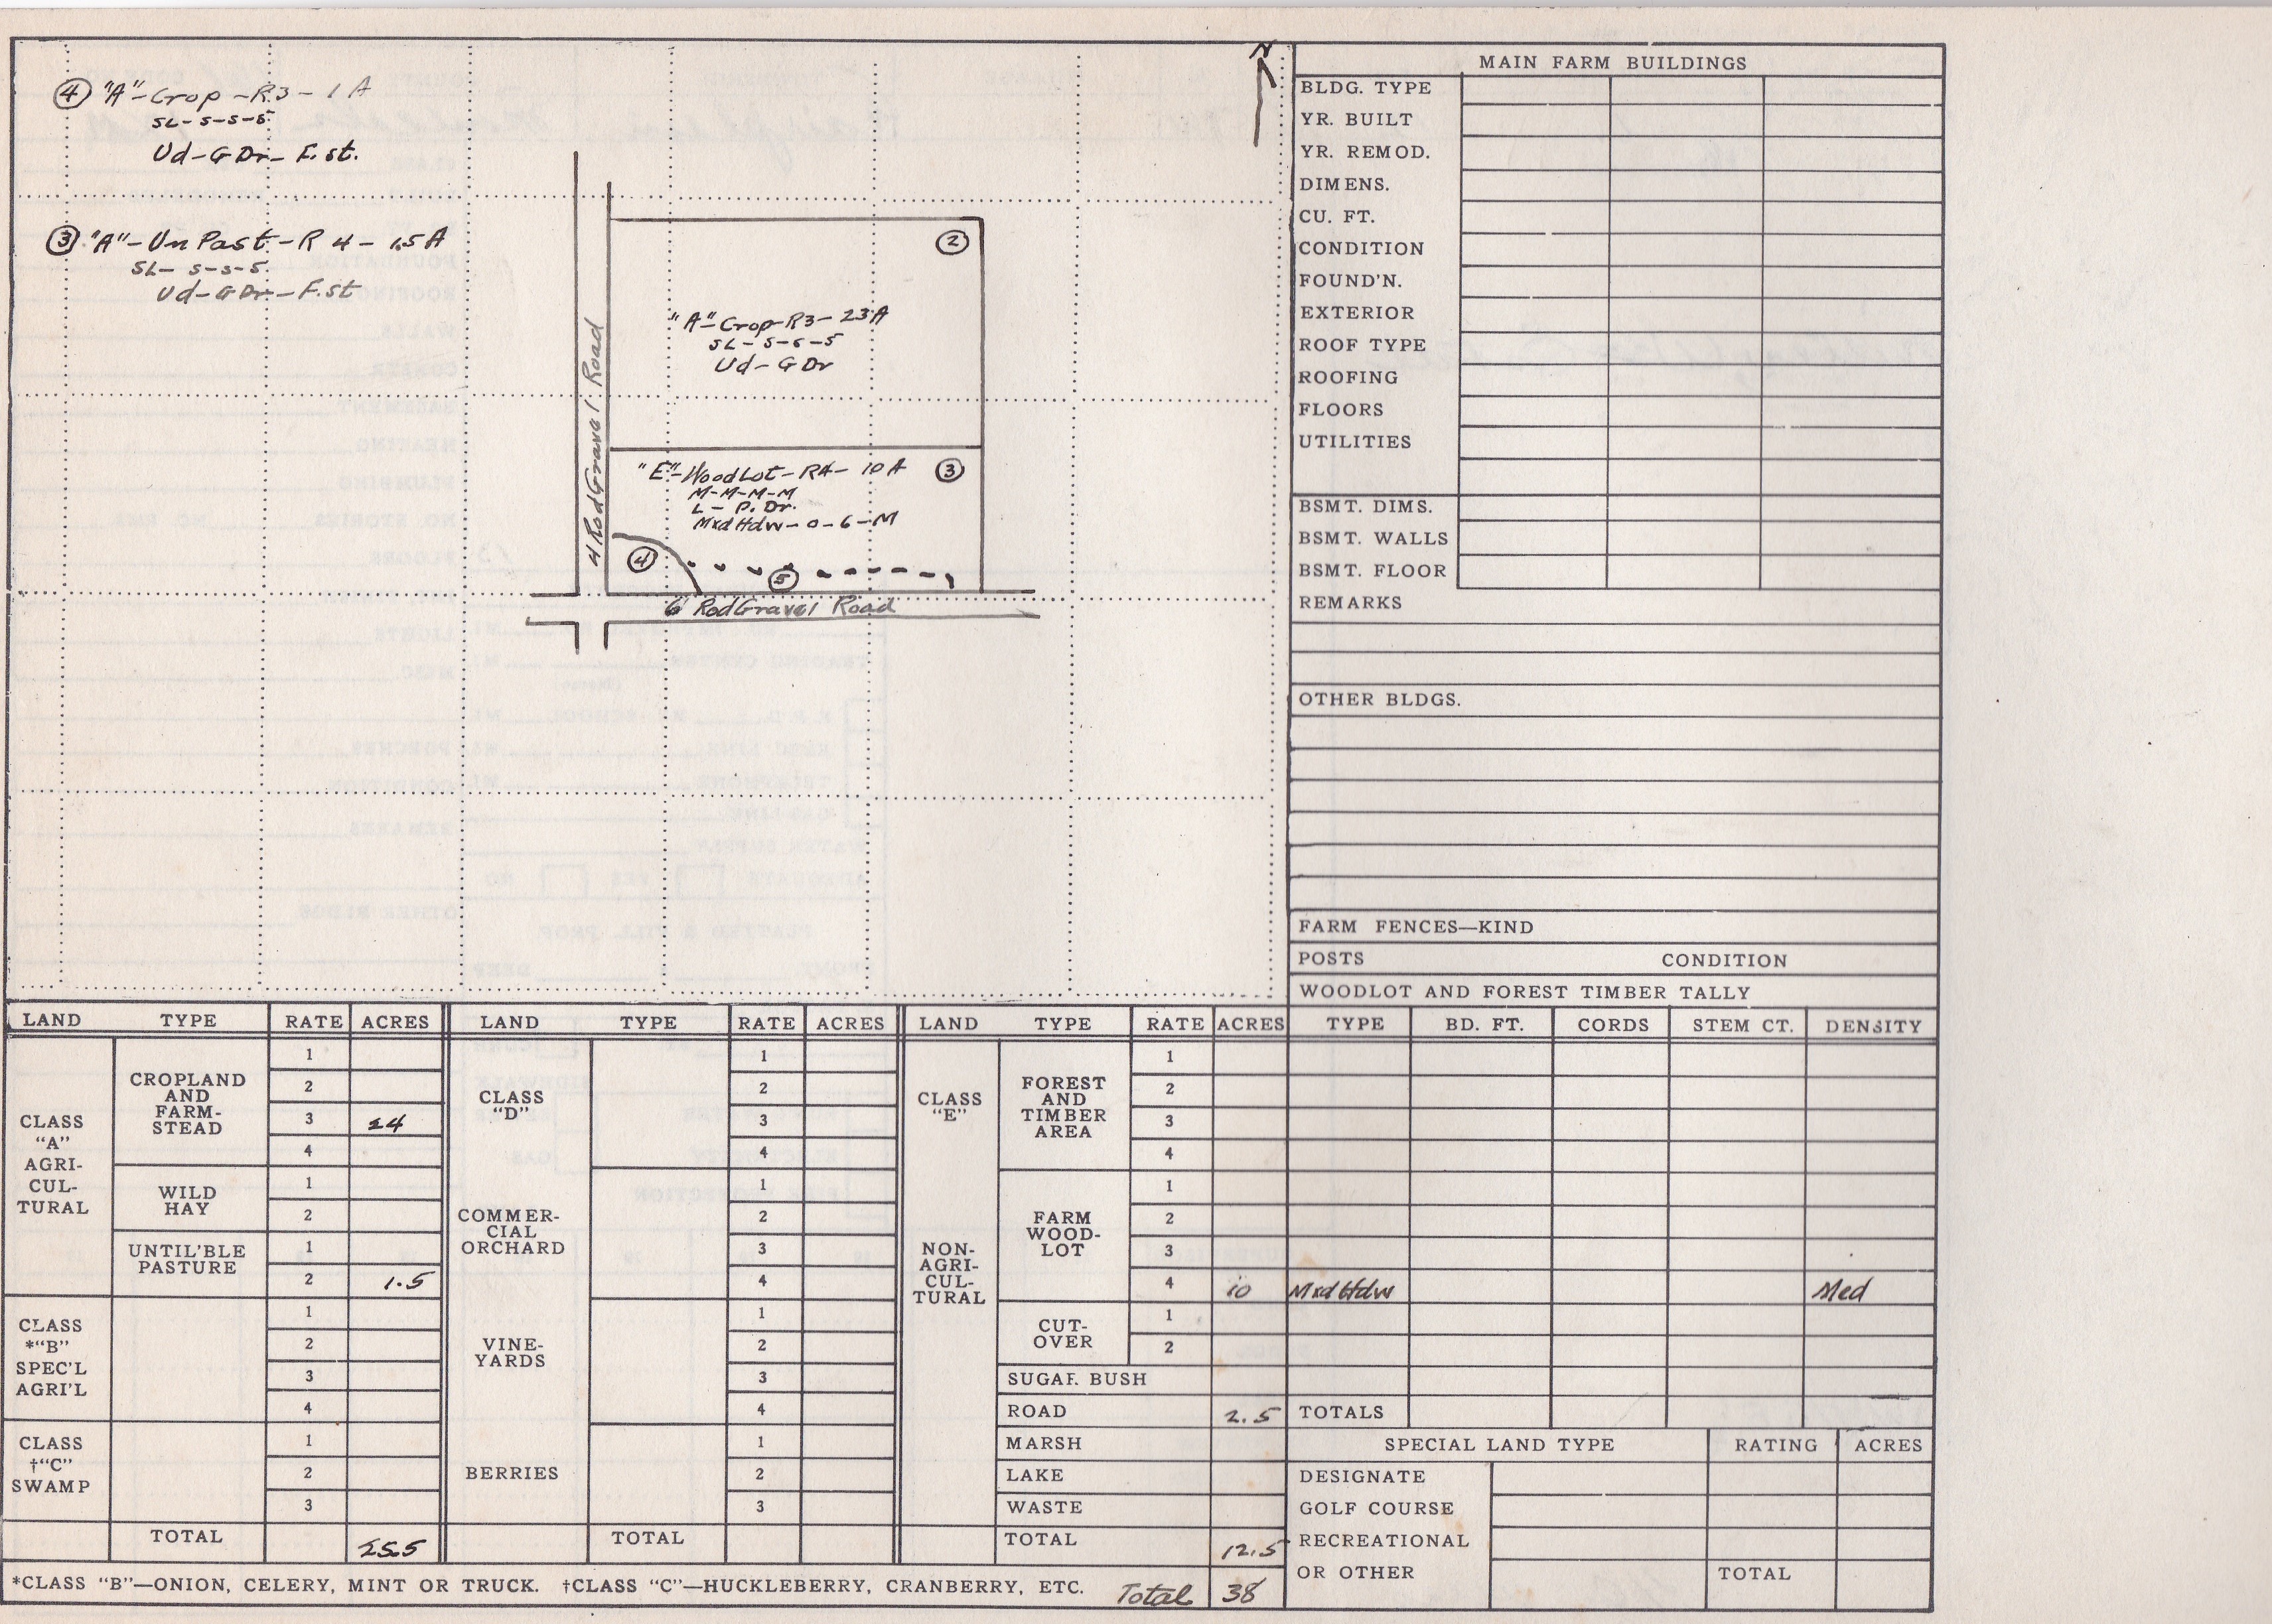 ④ "A"-Crop-R3-1A
SL-5-5-5
Ud-G Dr-F.st.
③ "A"-Un Past-R4-1.5A
SL-5-5-5
Ud-G Dr-F.st
N
②
"A"-Crop-R3-23A
SL-5-5-5
Ud-G Dr
4 Rod Gravel Road
"E"-WoodLot-R4-10A ③
M-M-M-M
L-P. Dr.
Mxd Hdw-0-6-M
④
⑤
6 Rod Gravel Road
MAIN FARM BUILDINGS
BLDG. TYPE
YR. BUILT
YR. REMOD.
DIMENS.
CU. FT.
CONDITION
FOUND'N.
EXTERIOR
ROOF TYPE
ROOFING
FLOORS
UTILITIES
BSMT. DIMS.
BSMT. WALLS
BSMT. FLOOR
REMARKS
OTHER BLDGS.
FARM FENCES—KIND
POSTS CONDITION
WOODLOT AND FOREST TIMBER TALLY
LAND TYPE RATE ACRES
CLASS
"A"
AGRI-
CUL-
TURAL
CROPLAND
AND
FARM-
STEAD
1
2
3 24
4
WILD
HAY
1
2
UNTIL'BLE
PASTURE
1
2 1.5
CLASS
*"B"
SPEC'L
AGRI'L
1
2
3
4
CLASS
†"C"
SWAMP
1
2
3
TOTAL 25.5
LAND TYPE RATE ACRES
CLASS
"D"
COMMER-
CIAL
ORCHARD
1
2
3
4
1
2
3
4
VINE-
YARDS
1
2
3
4
BERRIES
1
2
3
TOTAL
LAND TYPE RATE ACRES
CLASS
"E"
NON-
AGRI-
CUL-
TURAL
FOREST
AND
TIMBER
AREA
1
2
3
4
FARM
WOOD-
LOT
1
2
3
4 10
CUT-
OVER
1
2
SUGAR BUSH
ROAD 2.5
MARSH
LAKE
WASTE
TOTAL 12.5
TYPE BD. FT. CORDS STEM CT. DENSITY
Mxd Hdw Med
TOTALS
SPECIAL LAND TYPE RATING ACRES
DESIGNATE
GOLF COURSE
RECREATIONAL
OR OTHER TOTAL
*CLASS "B"—ONION, CELERY, MINT OR TRUCK. †CLASS "C"—HUCKLEBERRY, CRANBERRY, ETC. Total 38